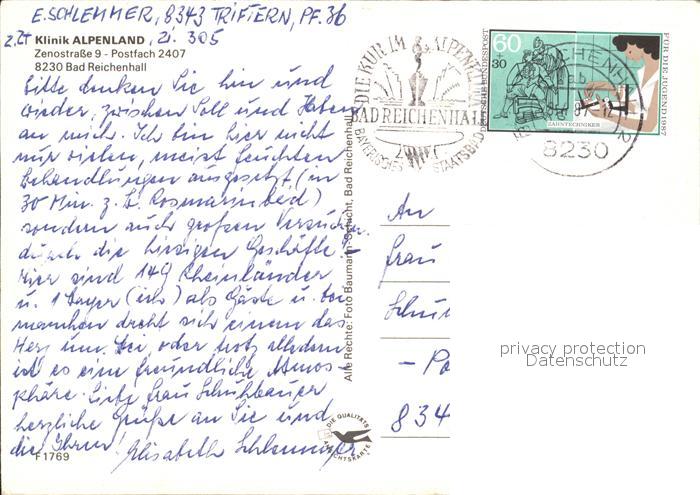 E. SCHLEMMER, 8343 TRIFTERN, PF. 36
z.Zt Klinik ALPENLAND, Zi. 305
Zenostraße 9 - Postfach 2407
8230 Bad Reichenhall
Bitte denken Sie hin und
wieder, zwischen Soll und Haben
an mich. Ich bin hier nicht
nur vielen, meist feuchten
Behandlungen ausgesetzt (in
30 Min. z. B. Rosmarinbad)
sondern auch großen Versuchen
durch die hiesigen Geschäfte. -
Hier sind 149 Rheinländer
u. 1 Bayer (ich) als Gäste u. bei
manchen dreht sich einem das
Herz um. Bei oder trotz alledem
ist es eine freundliche Atmos-
phäre. Liebe Frau Schuhbauer
herzliche Grüße an Sie und
die Ihren! Elisabeth Schlemmer
F1769
Alle Rechte: Foto Baumann-Schicht, Bad Reichenhall
DIE QUALITÄTS
ANSICHTSKARTE
DIE KUR IM ALPENKLIMA
BAD REICHENHALL
BAYERISCHES STAATSBAD
60
30
DEUTSCHE BUNDESPOST
ZAHNTECHNIKER
FÜR DIE JUGEND 1987
8230
An
Frau
Schu
- Po
834
privacy protection
Datenschutz